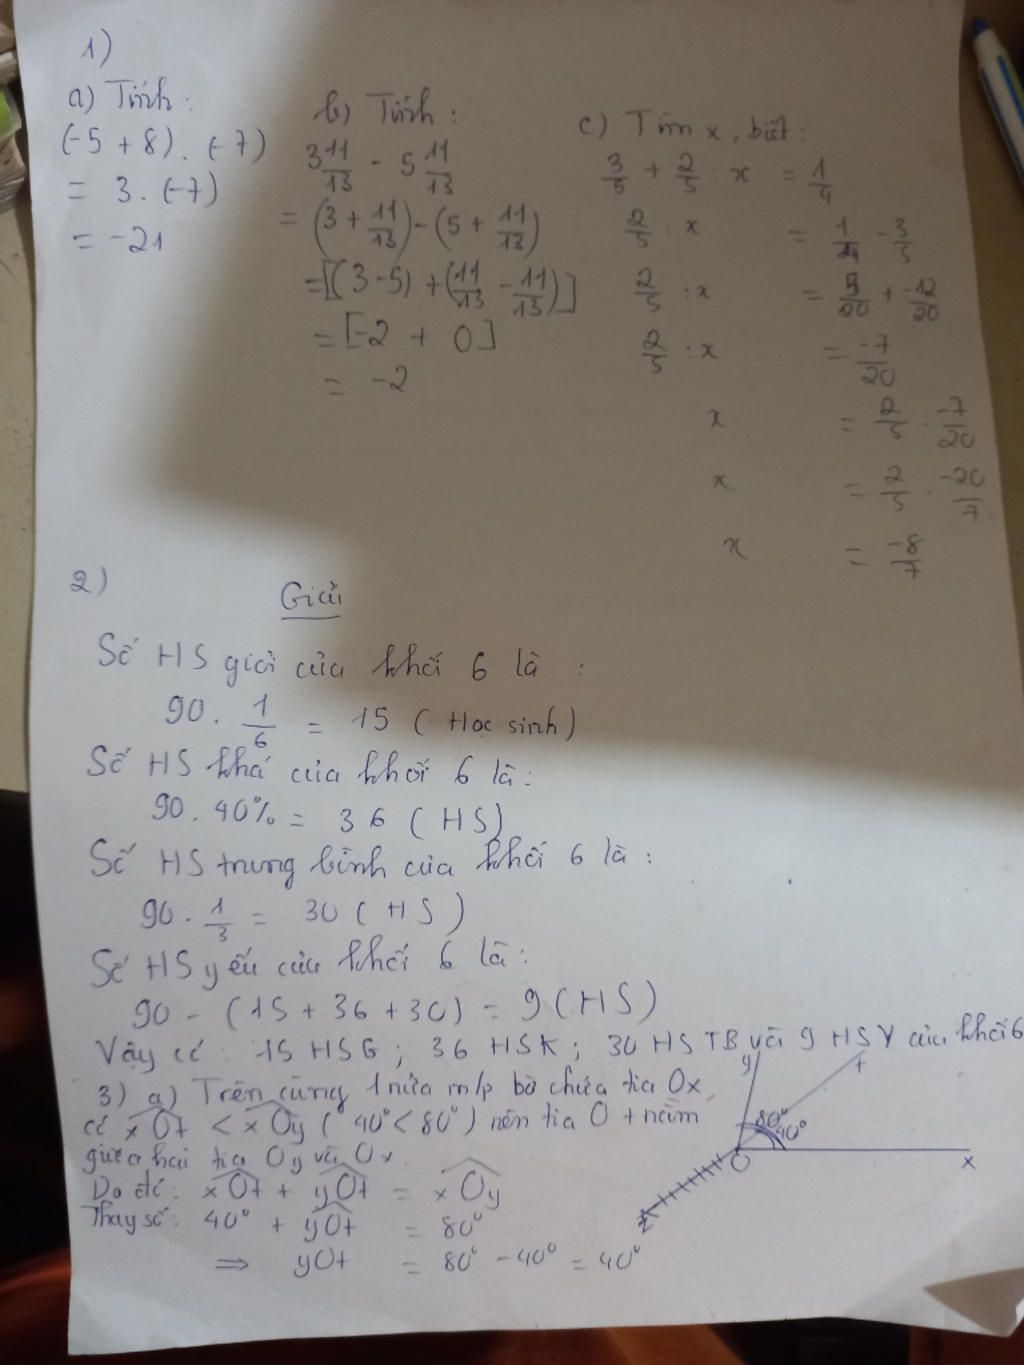 1)
a) Tính:
(-5 + 8) . (-7)
= 3 . (-7)
= -21
b) Tính:
3 11/13 - 5 11/13
= (3 + 11/13) - (5 + 11/13)
= [(3-5) + (11/13 - 11/13)]
= [-2 + 0]
= -2
c) Tìm x, biết:
3/5 + 2/5 : x = 1/4
2/5 : x = 1/4 - 3/5
2/5 : x = 5/20 + -12/20
2/5 : x = -7/20
x = 2/5 : -7/20
x = 2/5 . -20/7
x = -8/7
2)
Giải
Số HS giỏi của khối 6 là :
90 . 1/6 = 15 (Học sinh)
Số HS khá của khối 6 là:
90 . 40% = 36 (HS)
Số HS trung bình của khối 6 là:
90 . 1/3 = 30 (HS)
Số HS yếu của khối 6 là:
90 - (15 + 36 + 30) = 9 (HS)
Vậy có : 15 HSG ; 36 HSK ; 30 HS TB và 9 HS Y của khối 6
3) a) Trên cùng 1 nửa m/p bờ chứa tia Ox,
có xOt < xOy (40° < 80°) nên tia Ot nằm
giữa hai tia Oy và Ox.
Do đó: xOt + yOt = xOy
Thay số: 40° + yOt = 80°
⇒ yOt = 80° - 40° = 40°
y
t
80°
40°
O
x
z